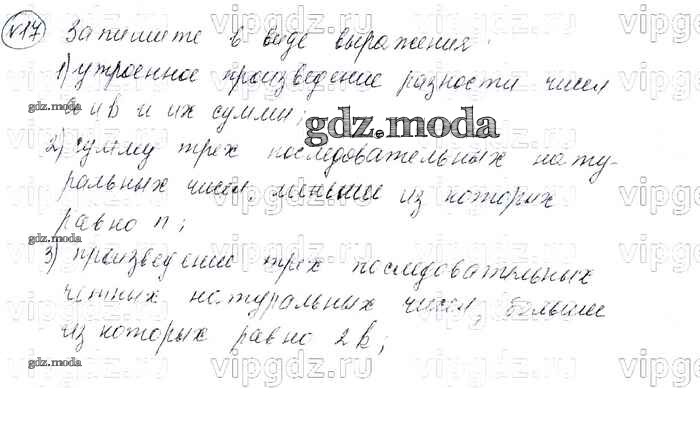 №17 Запишите в виде выражения:
1) утроенное произведение разности чисел
а и в и их суммы;
2) сумму трех последовательных нату-
ральных чисел, меньшее из которых
равно n;
3) произведение трех последовательных
четных натуральных чисел, большее
из которых равно 2k;
gdz.moda
gdz.moda
gdz.moda
gdz.moda
vipgdz.ru